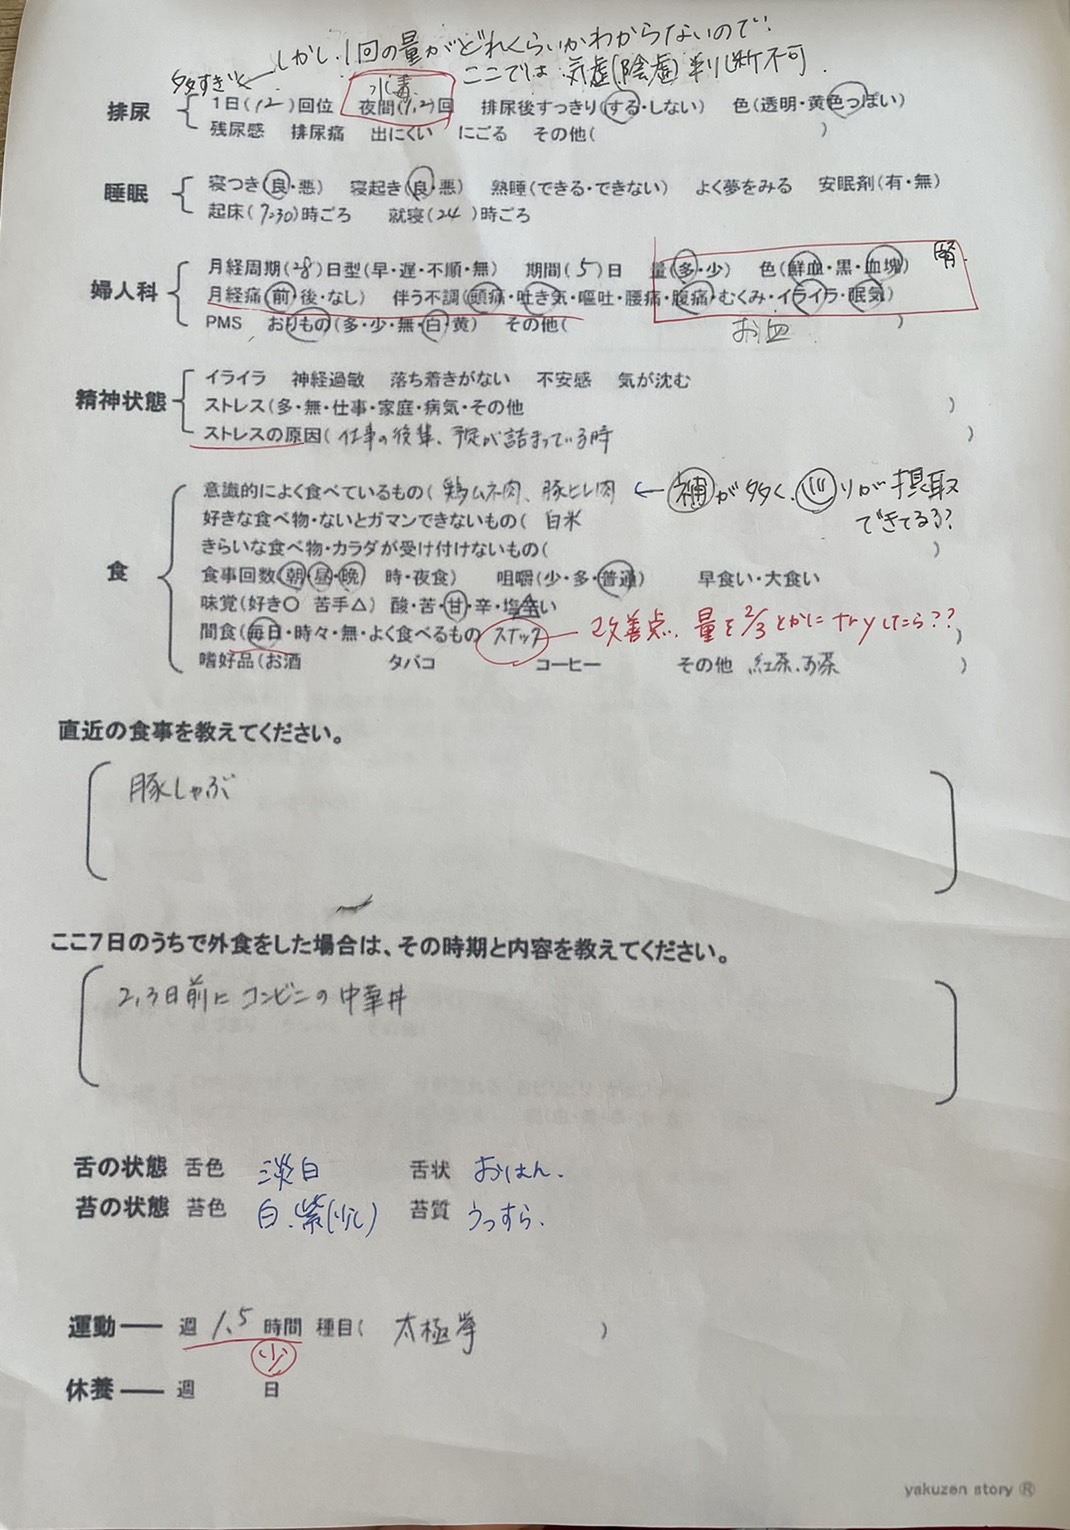 しかし、1回の量がどれくらいかわからないので、
多すぎ ここでは 気虚(陰虚)判断不可.
水毒
排尿 1日(12)回位 夜間(1,2)回 排尿後すっきり(する・しない) 色(透明・黄色っぽい)
残尿感 排尿痛 出にくい にごる その他( )
睡眠 寝つき(良・悪) 寝起き(良・悪) 熟睡(できる・できない) よく夢をみる 安眠剤(有・無)
起床(7:30)時ごろ 就寝(24)時ごろ
婦人科 月経周期(28)日型(早・遅・不順・無) 期間(5)日 量(多・少) 色(鮮血・黒・血塊)
月経痛(前・後・なし) 伴う不調(頭痛・吐き気・嘔吐・腰痛・腹痛・むくみ・イライラ・眠気)
PMS おりもの(多・少・無・白・黄) その他( )
お血
精神状態 イライラ 神経過敏 落ち着きがない 不安感 気が沈む
ストレス(多・無・仕事・家庭・病気・その他 )
ストレスの原因(仕事の後輩、予定が詰まっている時 )
食 意識的によく食べているもの(鶏ムネ肉、豚ヒレ肉 ← 補が多く、 りが摂取できてる??
好きな食べ物・ないとガマンできないもの( 白米
きらいな食べ物・カラダが受け付けないもの( )
食事回数(朝・昼・晩 時・夜食) 咀嚼(少・多・普通) 早食い・大食い
味覚(好き○ 苦手△) 酸・苦・甘・辛・塩辛い
間食(毎日・時々・無・よく食べるもの スナック ) 改善点、量を2/3とかにtryしたら??
嗜好品(お酒 タバコ コーヒー その他 紅茶、お茶 )
直近の食事を教えてください。
豚しゃぶ
ここ7日のうちで外食をした場合は、その時期と内容を教えてください。
2,3日前に コンビニの中華丼
舌の状態 舌色 淡白 舌状 おはん.
苔の状態 苔色 白、紫(少し) 苔質 うっすら、
運動― 週 1.5 時間 種目( 太極拳 )
少
休養― 週 日
yakuzen story ®